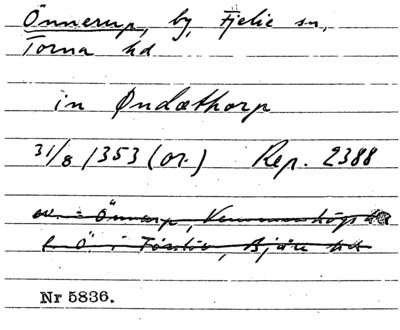 Önnerup, by, Fjelie sn,
Torna hd
in Øndæthorp
31/8 1353 (or.) Rep. 2388
ev. = Önnarp, Vemmenhögs hd
l. Ö. i Förslöv, Bjäre hd
Nr 5836.